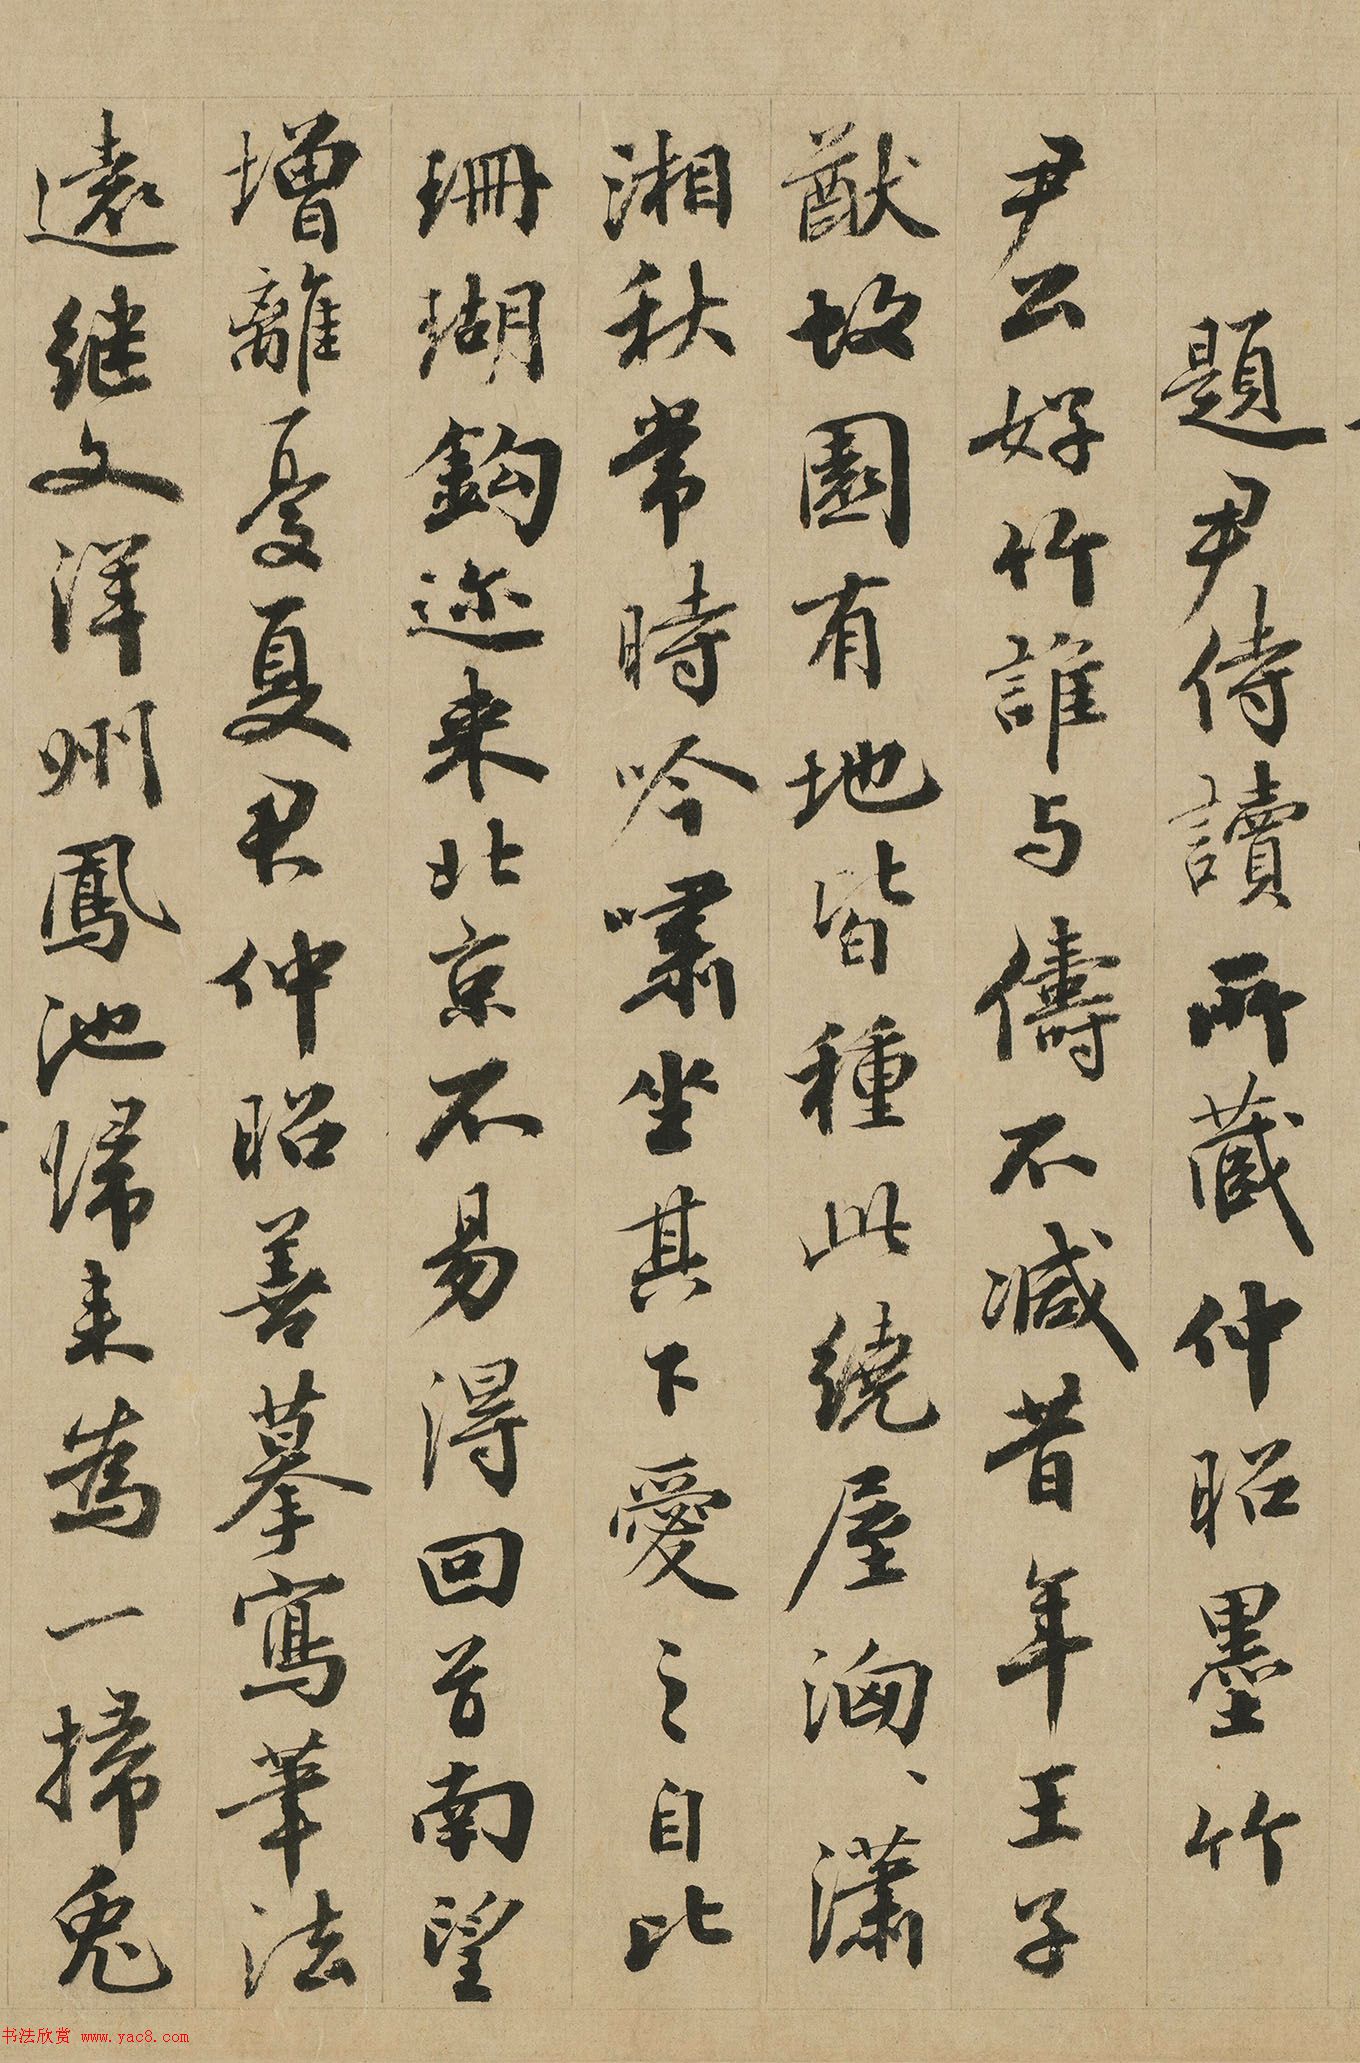 題尹侍讀所藏仲昭墨竹
尹公好竹誰与儔不減昔年王子
猷故園有地皆種此繞屋洶、瀟
湘秋常時吟嘯坐其下愛之自比
珊瑚鈎迩来北京不易得回首南望
增離憂夏君仲昭善摹寫筆法
遠継文洋州鳳池帰来為一掃兔
书法欣赏 www.yac8.com